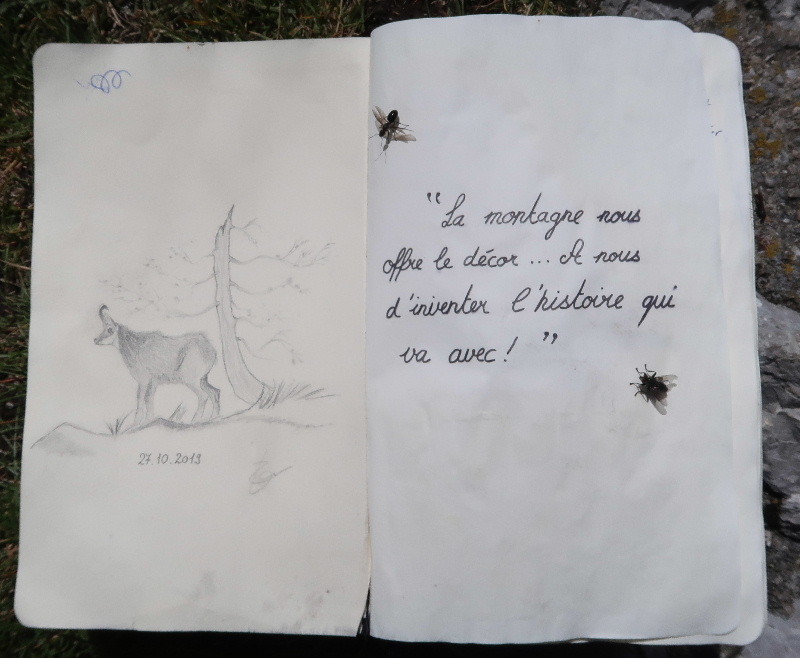 27.10.2013
"La montagne nous
offre le décor ... A nous
d'inventer l'histoire qui
va avec ! "